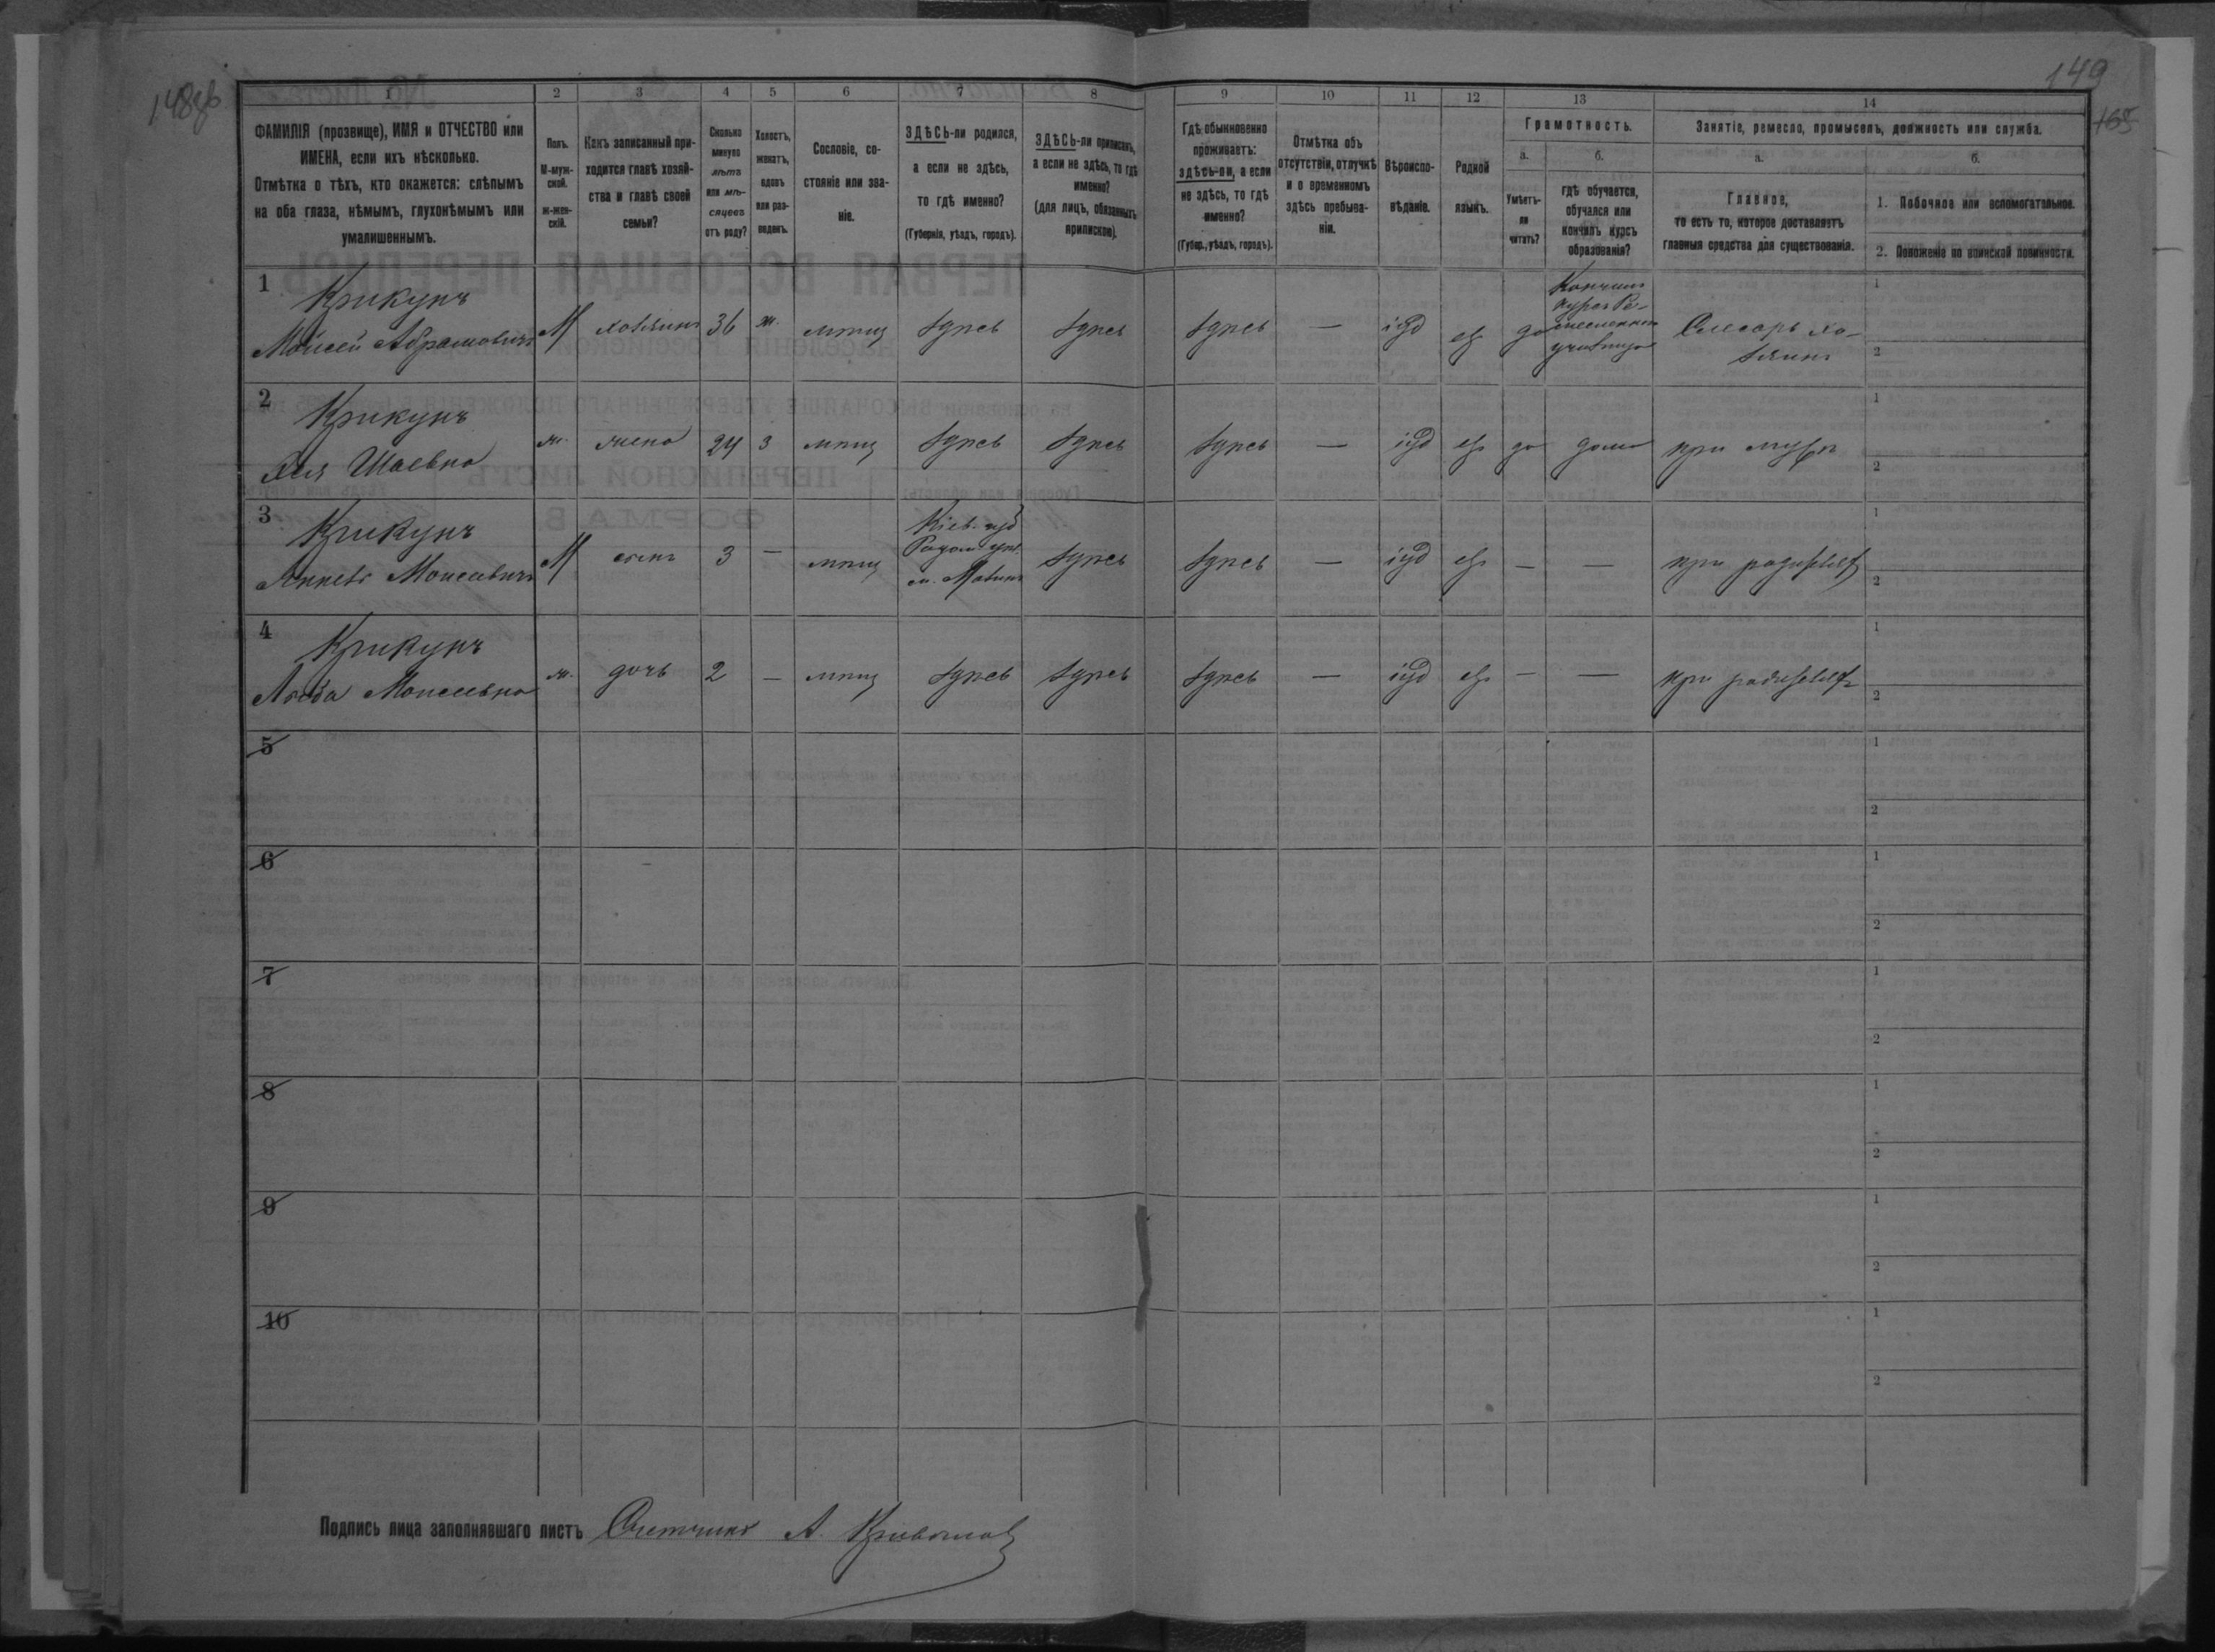 148об
149
165
1
2
3
4
5
6
7
8
9
10
11
12
13
14
ФАМИЛІЯ (прозвище), ИМЯ и ОТЧЕСТВО или
ИМЕНА, если ихъ нѣсколько.
Отмѣтка о тѣхъ, кто окажется: слѣпымъ
на оба глаза, нѣмымъ, глухонѣмымъ или
умалишеннымъ.
Полъ.
М-муж-
ской.
Ж-жен-
скій.
Какъ записанный при-
ходится главѣ хозяй-
ства и главѣ своей
семьи?
Сколько
минуло
лѣтъ
или мѣ-
сяцевъ
отъ роду?
Холостъ,
женатъ,
вдовъ
или раз-
веденъ.
Сословіе, со-
стояніе или зва-
ніе.
ЗДѢСЬ-ли родился,
а если не здѣсь,
то гдѣ именно?
(Губернія, уѣздъ, городъ).
ЗДѢСЬ-ли приписанъ,
а если не здѣсь, то гдѣ
именно?
(для лицъ, обязанныхъ
припиской).
Гдѣ обыкновенно
проживаетъ:
здѣсь-ли, а если
не здѣсь, то гдѣ
именно?
(Губер., уѣздъ, городъ).
Отмѣтка объ
отсутствіи, отлучкѣ
и о временномъ
здѣсь пребыва-
ніи.
Вѣроиспо-
вѣданіе.
Родной
языкъ.
Грамотность.
а.
Умѣетъ-
ли
читать?
б.
гдѣ обучается,
обучался или
кончилъ курсъ
образованія?
Занятіе, ремесло, промыселъ, должность или служба.
а.
Главное,
то есть то, которое доставляетъ
главныя средства для существованія.
б.
1. Побочное или вспомогательное.
2. Положеніе по воинской повинности.
1 Крикунъ
Мойсей Абрамовичъ
М
хозяинъ
36
ж.
мѣщ
здѣсь
здѣсь
здѣсь
—
іуд
евр
да
Кончилъ
курсъ Ре-
месленнаго
училища
Слесарь хо-
зяинъ
1
2
2 Крикунъ
Хая Шаевна
ж.
жена
24
з
мѣщ
здѣсь
здѣсь
здѣсь
—
іуд
евр
да
дома
при мужѣ
1
2
3 Крикунъ
Моисеевичъ
М
сынъ
3
—
мѣщ
Кіев. губ
Радом. уѣз.
здѣсь
здѣсь
—
іуд
евр
—
—
при родителях
1
2
4 Крикунъ
Моисеевна
ж.
дочь
2
—
мѣщ
здѣсь
здѣсь
здѣсь
—
іуд
евр
—
—
при родителях
1
2
5
1
2
6
1
2
7
1
2
8
1
2
9
1
2
10
1
2
Подпись лица заполнявшаго листъ Счетчикъ А.